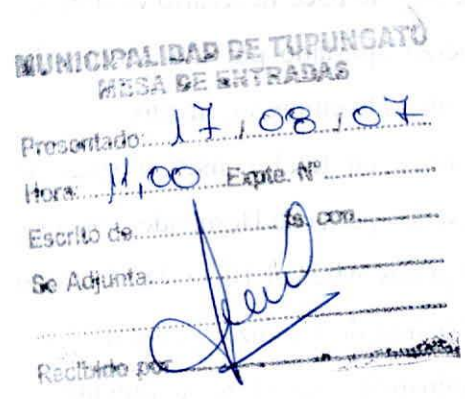 MUNICIPALIDAD DE TUPUNGATO
MESA DE ENTRADAS
Presentado: 17 / 08 / 07
Hora: 11,00 Expte. Nº
Escrito de fs. con
Se Adjunta
Recibido por